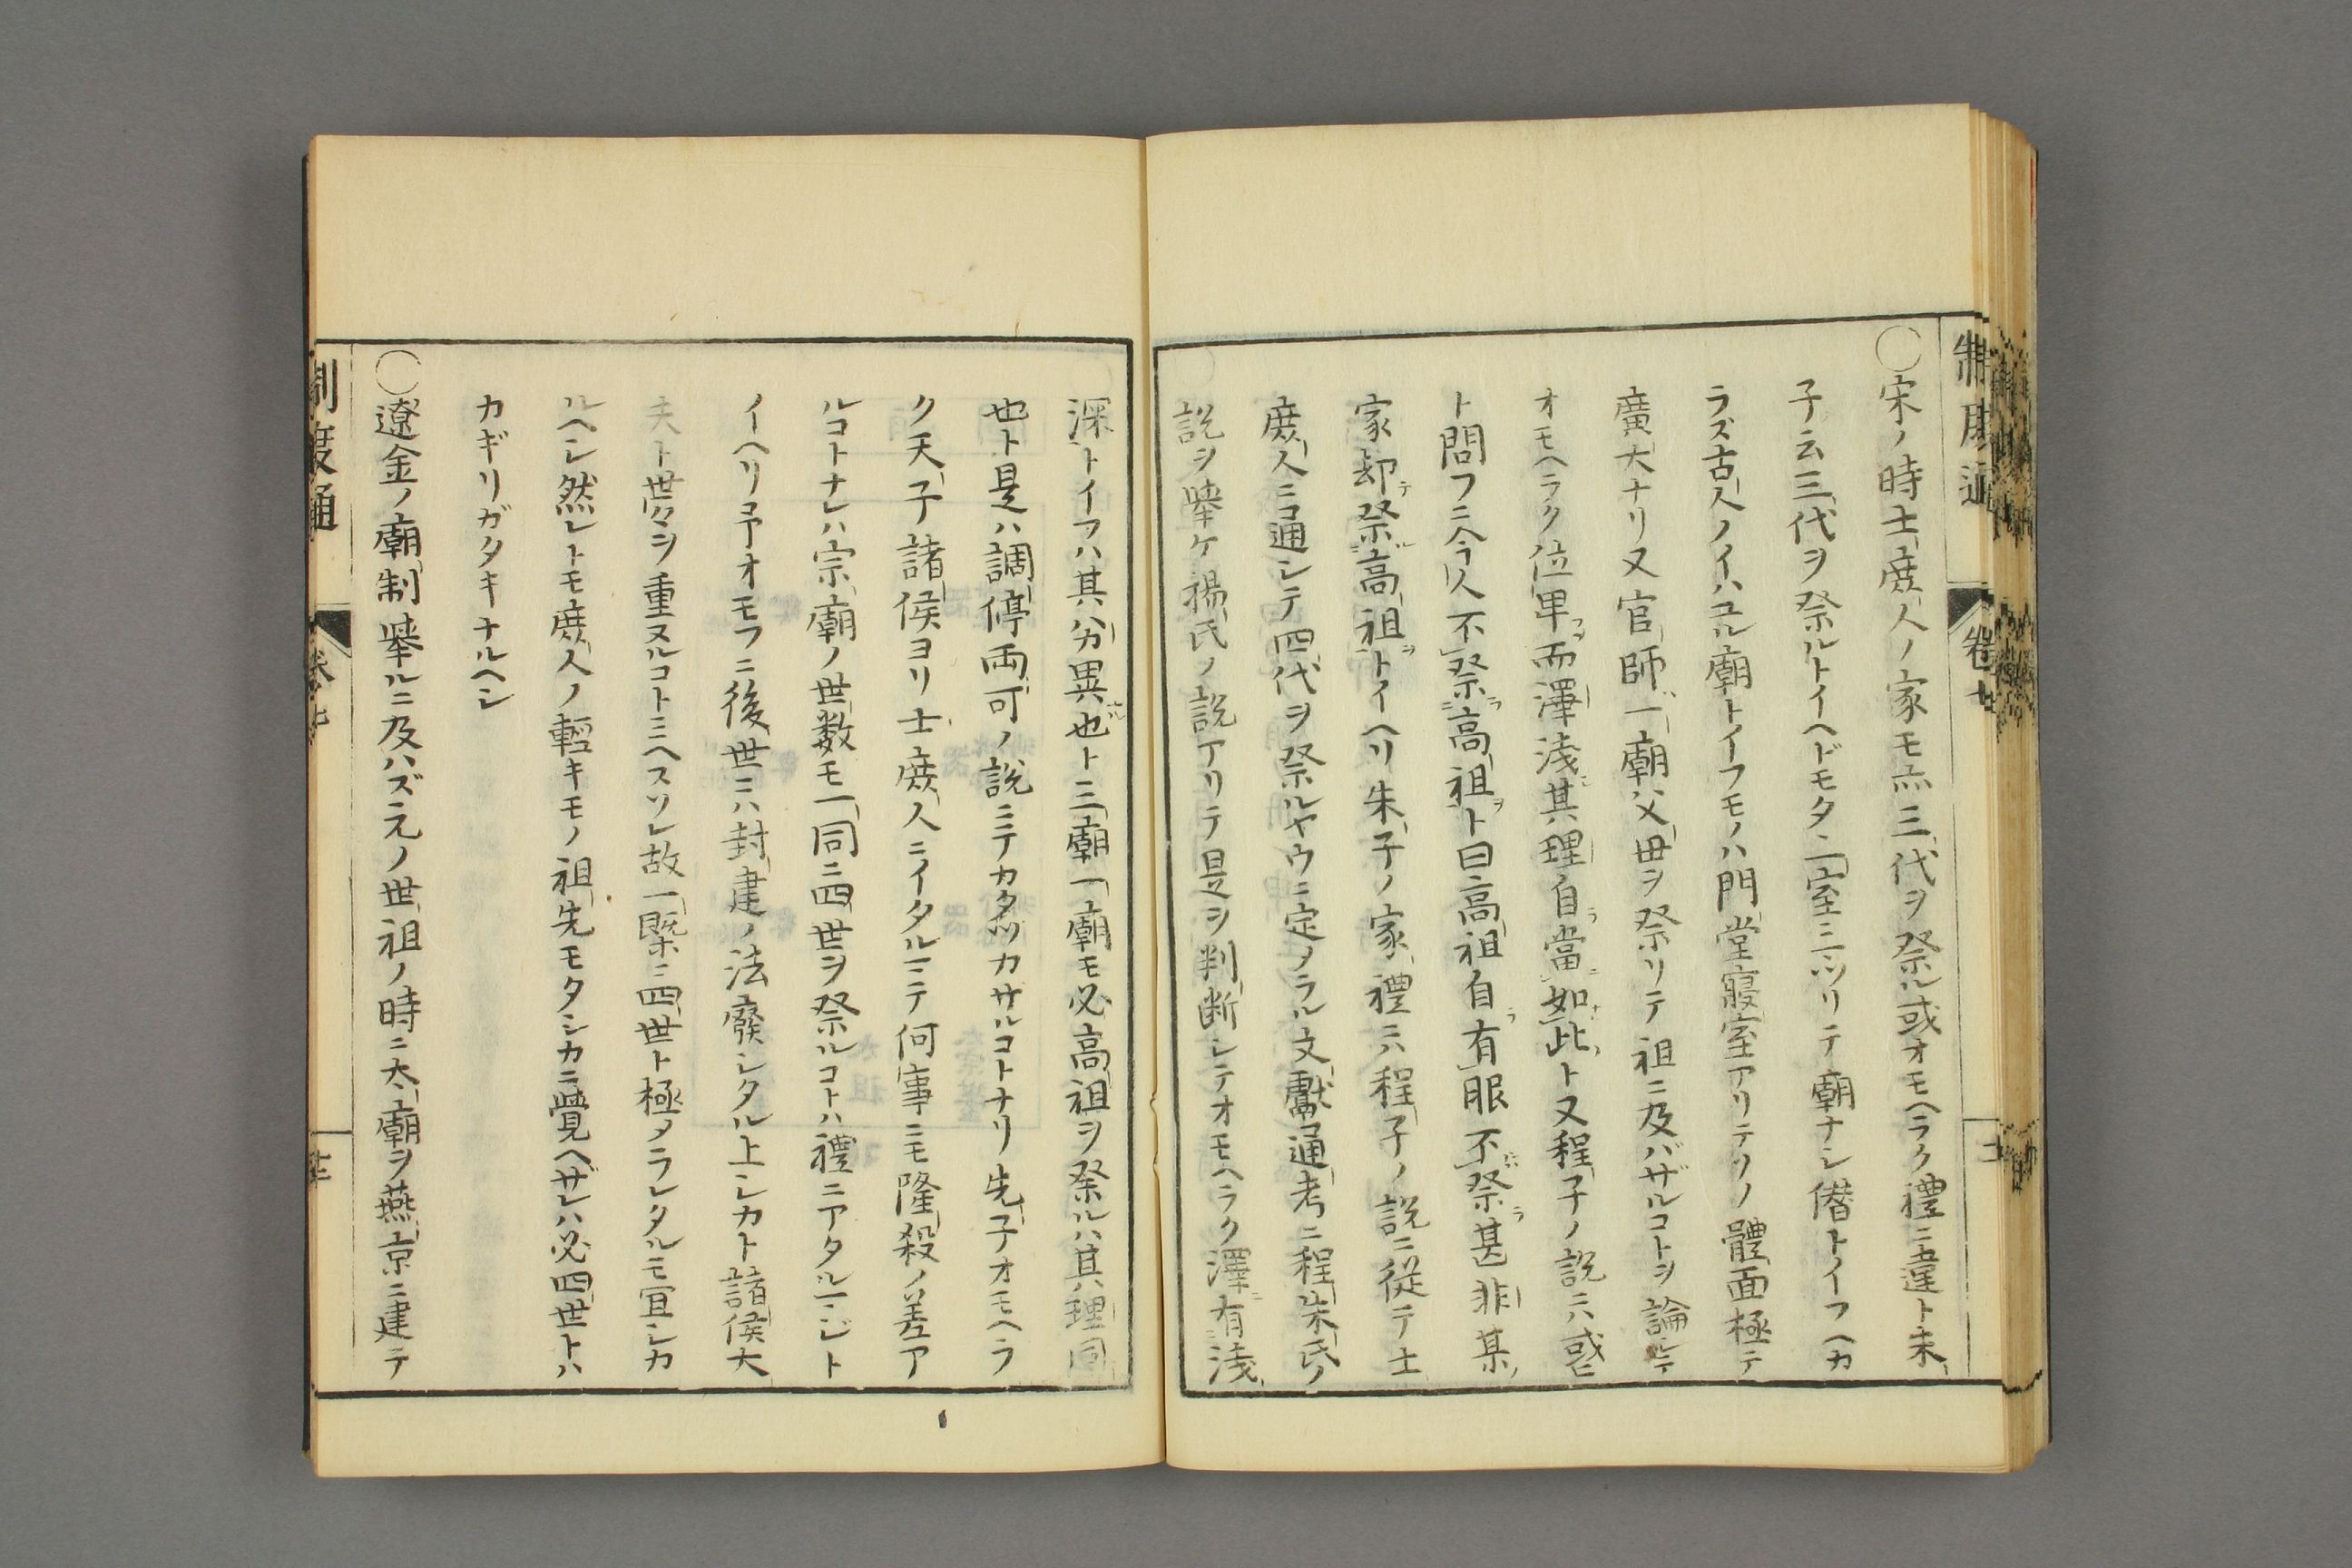 制度通 卷七
〇宋ノ時士庶人ノ家モ亦三代ヲ祭ル或オモヘラク禮ニ違ト朱
子云三代ヲ祭ルトイヘドモタ〻一室ニツリテ廟ナシ僭トイフヘカ
ラズ古人ノイハユル廟トイフモノハ門堂寢室アリテソノ體面極テ
廣大ナリ又官師一廟父母ヲ祭リテ祖ニ及バザルコトヲ論シテ
オモヘラク位卑而澤淺其理自當如此ト又程子ノ説ニハ或ヒト
ト問フニ今人不祭高祖ト曰高祖自有服不祭甚非某
家却祭高祖トイヘリ朱子ノ家禮ニハ程子ノ説ニ從テ士
庶人ニ通シテ四代ヲ祭ルヤウニ定メラル文獻通考ニ程朱氏ノ
説ヲ擧ケ楊氏ノ説アリテ是ヲ判断シテオモヘラク澤有淺
深トイフハ其分異也ト三廟一廟モ必高祖ヲ祭ルハ其理同
也ト是ハ調停両可ノ説ニテカタツカサルコトナリ先子オモヘラ
ク天子諸侯ヨリ士庶人ニイタルニテ何事ニモ隆殺ノ差ア
ルコトナレハ宗廟ノ世数モ一同ニ四世ヲ祭ルコトハ禮ニアタルマジト
イヘリ予オモフニ後世ニハ封建ノ法廢シタル上シカト諸侯大
夫ト世〻ヲ重ヌルコトミヘスソレ故一槩ニ四世ト極メラレタルモ宜シカ
ルヘシ然レトモ庶人ノ輕キモノ祖先モタシカニ覺ヘザレハ必四世トハ
カギリガタキナルヘシ
〇遼金ノ廟制擧ルニ及ハズ元ノ世祖ノ時ニ太廟ヲ燕京ニ建テ
制度通 卷七